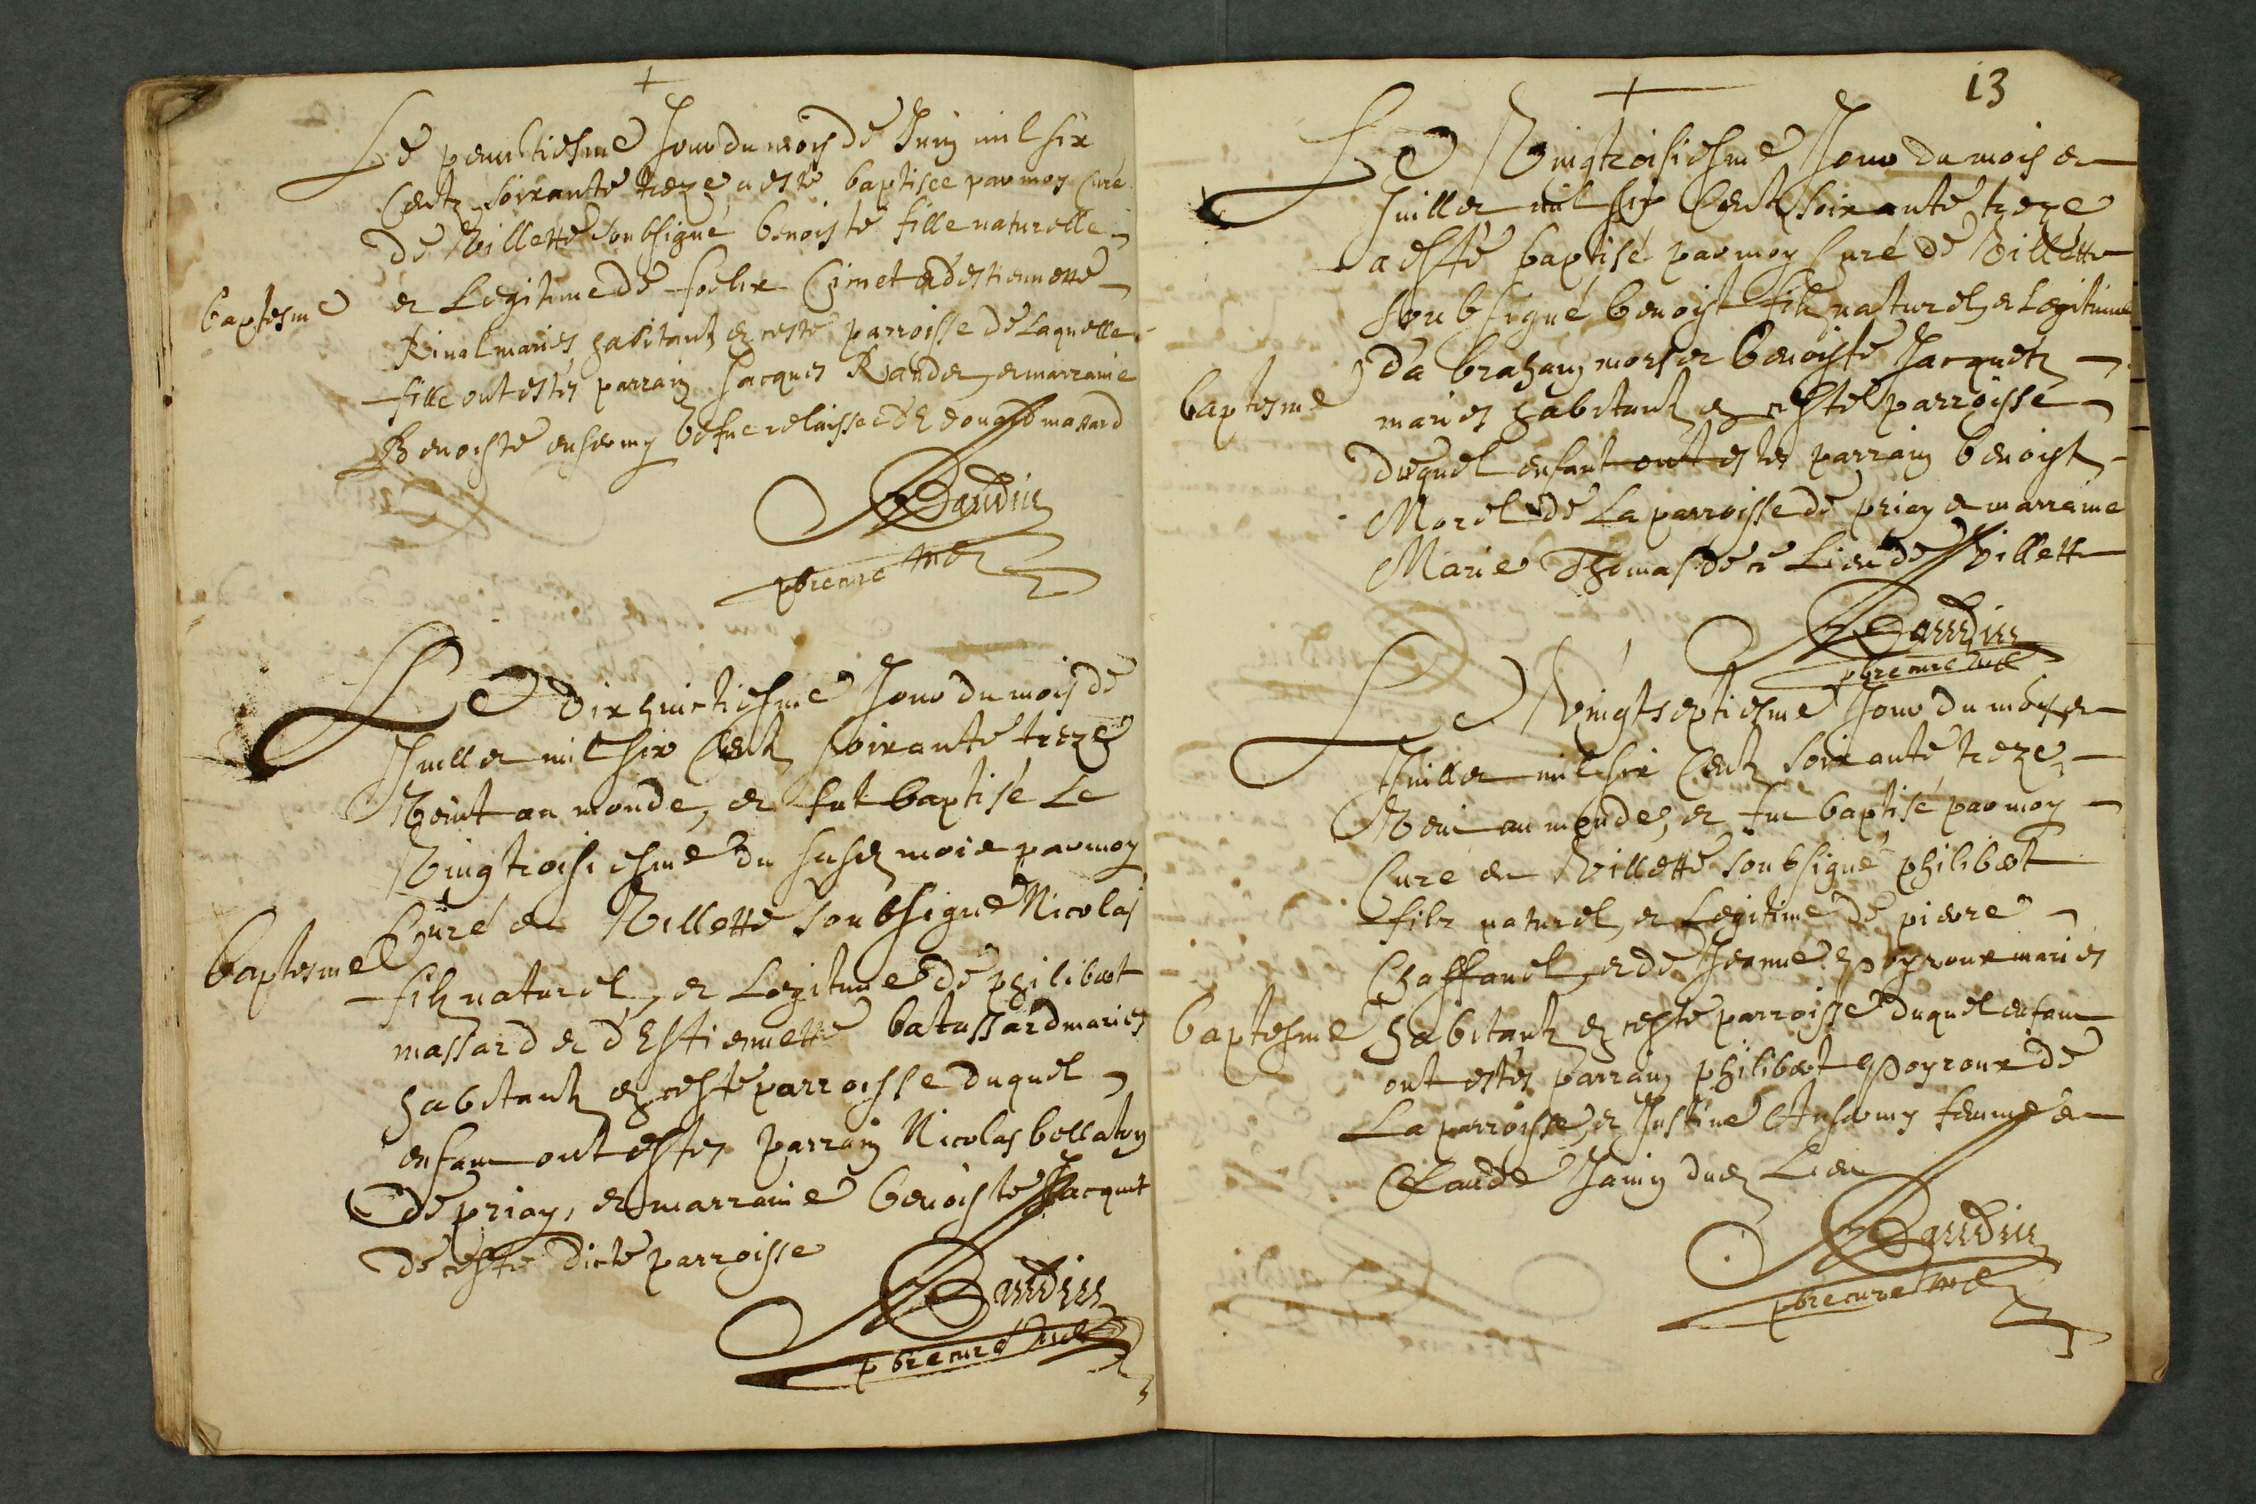 Le penultiesme Jour du mois de Juin mil six
Centz soixante treze a esté baptisée par moy Curé
de Villette soubsigné benoiste fille naturelle
baptesme
et Legitime de foelix Cimet et d'estiennette
Rinal mariés habitantz en ceste parroisse de Laquelle
fille ont estés parrain Jacques Rander, et marraine
Benoiste ensermy vefue relaissee de massard
Baudin
pbre curé
Le Dixhuictiesme Jour du mois de
Juillet mil six Centz soixante treze
Veint au monde, et fut baptisé Le
Vingtroisiesme du susd mois par moy
Curé de Villette soubsigné Nicolas
baptesme
filz naturel, et Legitime de philibert
massard et d'Estiennette batassard mariés
habitantz en ceste parroisse duquel
enfant ont estés parrain Nicolas bellaton
de priay, et marraine benoiste Jacquet
de ceste dicte parroisse
Baudin
pbre curé
13
Le Vingtroisiesme Jour du mois de
Juillet mil six Centz soixante treze
a esté baptisé par moy Curé de Villette
soubsigné benoist filz naturel, et Legitime
d'abraham morsier benoiste Jacquetz
baptesme
mariés habitantz en ceste parroisse
duquel enfant ont estés parrain benoist
Morel de La parroisse de priay et marraine
Marie Thomas de ce Lieu de Villette
Baudin
pbre curé
Le Vingtseptiesme Jour du mois de
Juillet mil six Centz soixante treze
Vein au monde, et fut baptisé par moy
Curé de Villette soubsigné philibert
filz naturel, et Legitime de pierre
Chaffanel, et de Jeanne Poyroux mariés
baptesme
habitantz en ceste parroisse duquel enfant
ont estés parrain philibert Poyroux de
La parroisse, et Justine Ansermy femme de
Claude Janin dud Lieu
Baudin
pbre curé